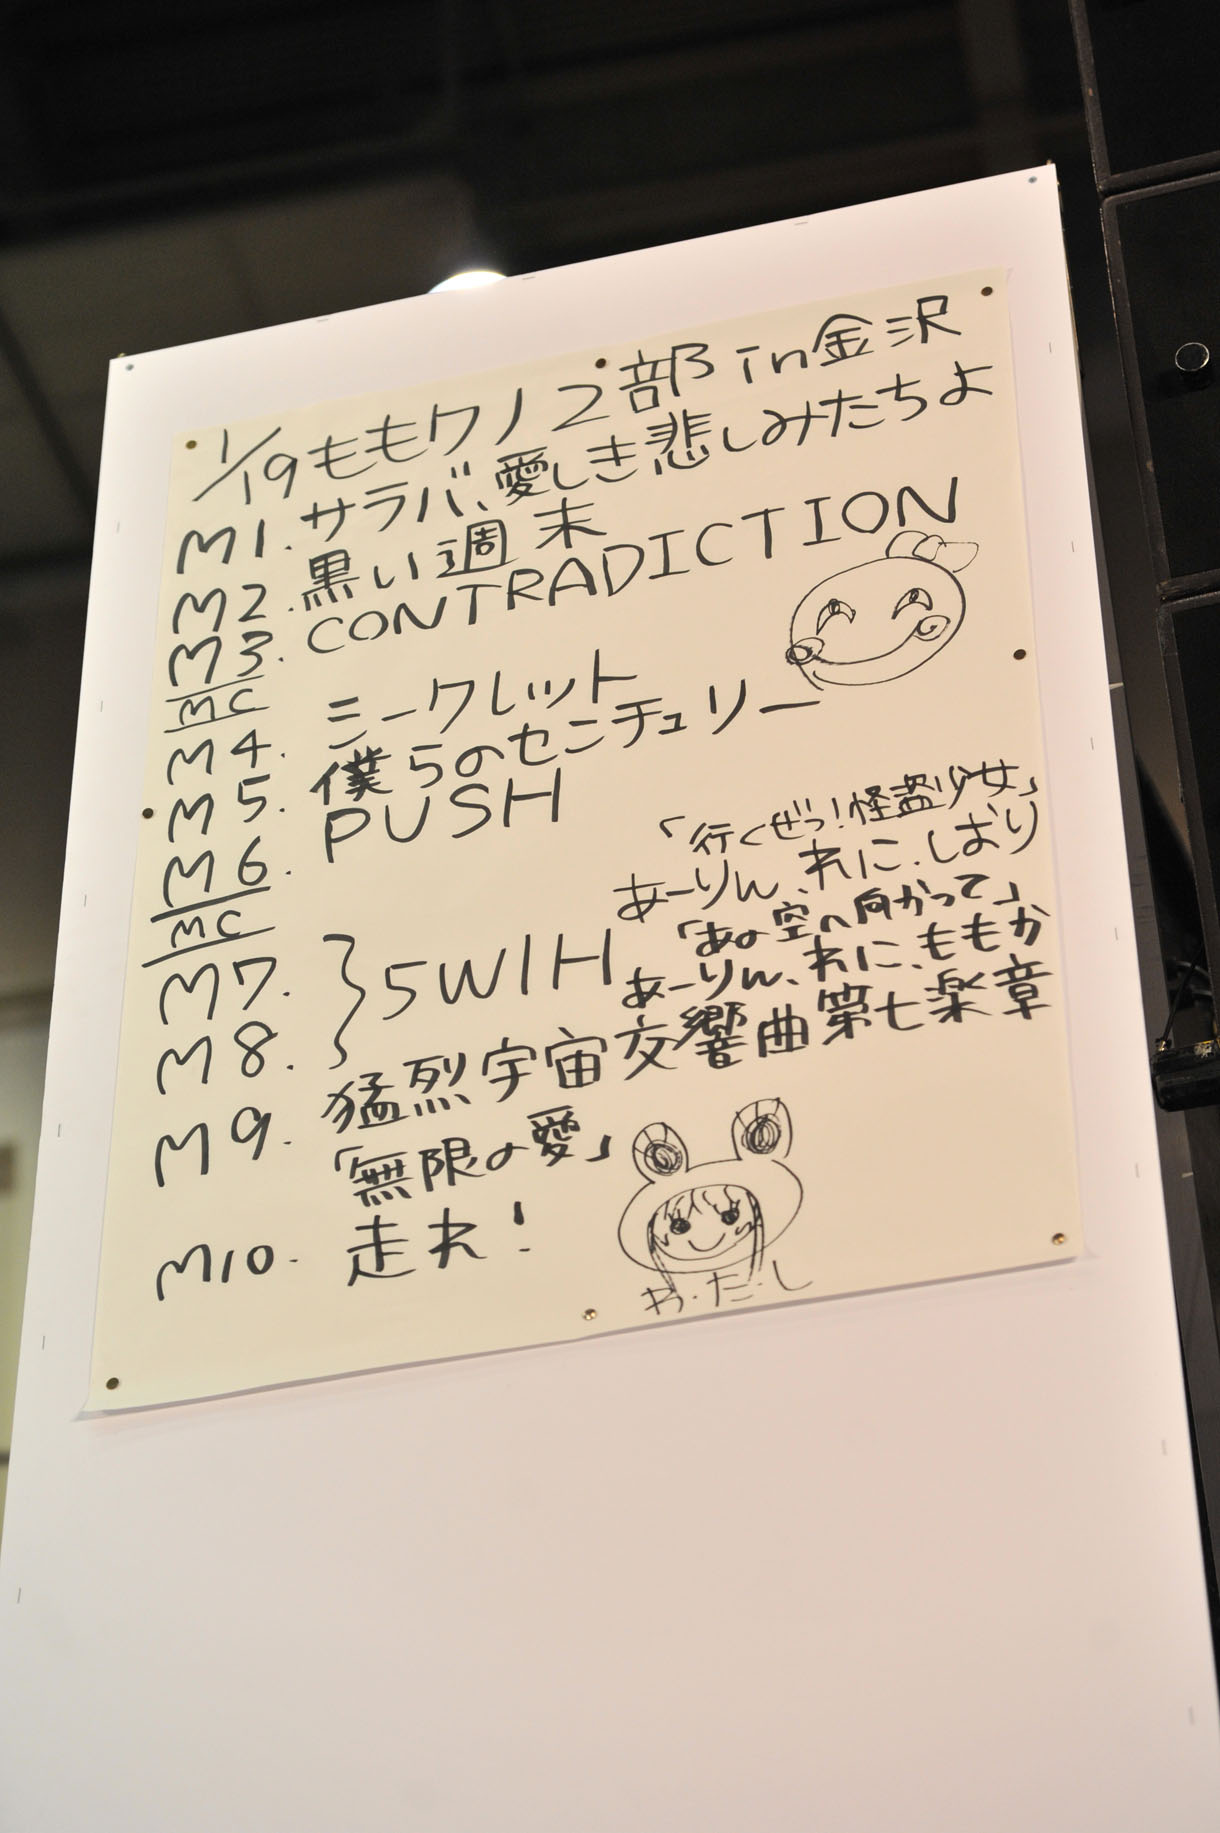 1/19ももクノ2部in金沢
M1. サラバ、愛しき悲しみたちよ
M2. 黒い週末
M3. CONTRADICTION
MC
M4. シークレット
M5. 僕らのセンチュリー
M6. PUSH
MC
「行くぜっ!怪盗少女」
あーりん、れに、しおり
「あの空へ向かって」
あーりん、れに、ももか
M7.
5W1H
M8.
M9. 猛烈宇宙交響曲第七楽章
「無限の愛」
M10. 走れ!
わ・だ・し